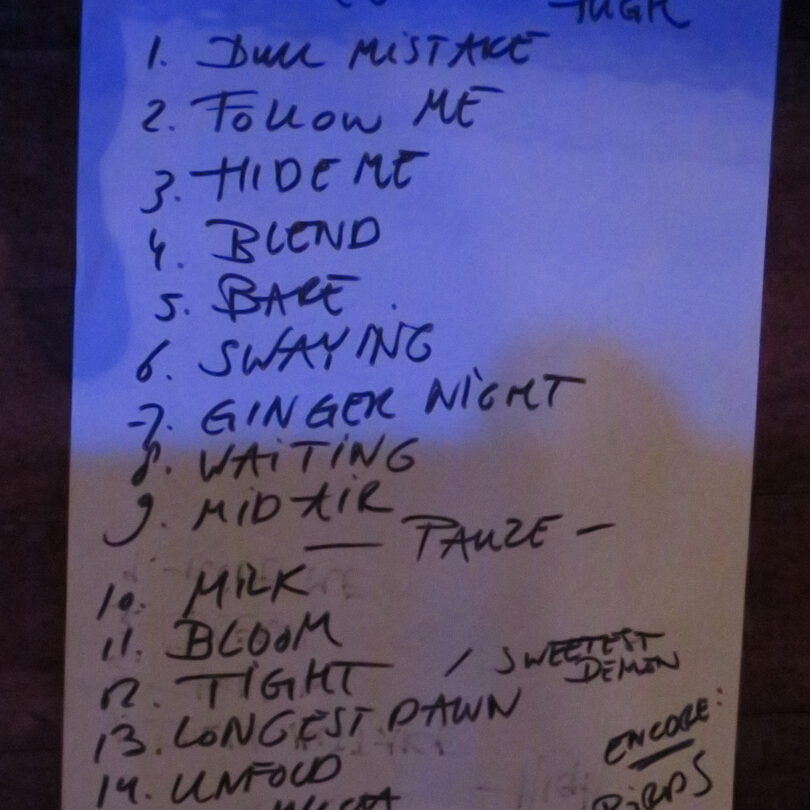 1. DULL MiSTAKE
2. FOLLOW ME
3. HIDE ME
4. BLEND
5. BARE
6. SWAYING
7. GINGER NiGHT
8. WAiTiNG
9. MiD AiR
— PAUZE –
10. MILK
11. BLOOM
12. TIGHT / SWEETEST DEMON
13. LONGEST DAWN
14. UNFOLD
ENCORE:
BiRDS